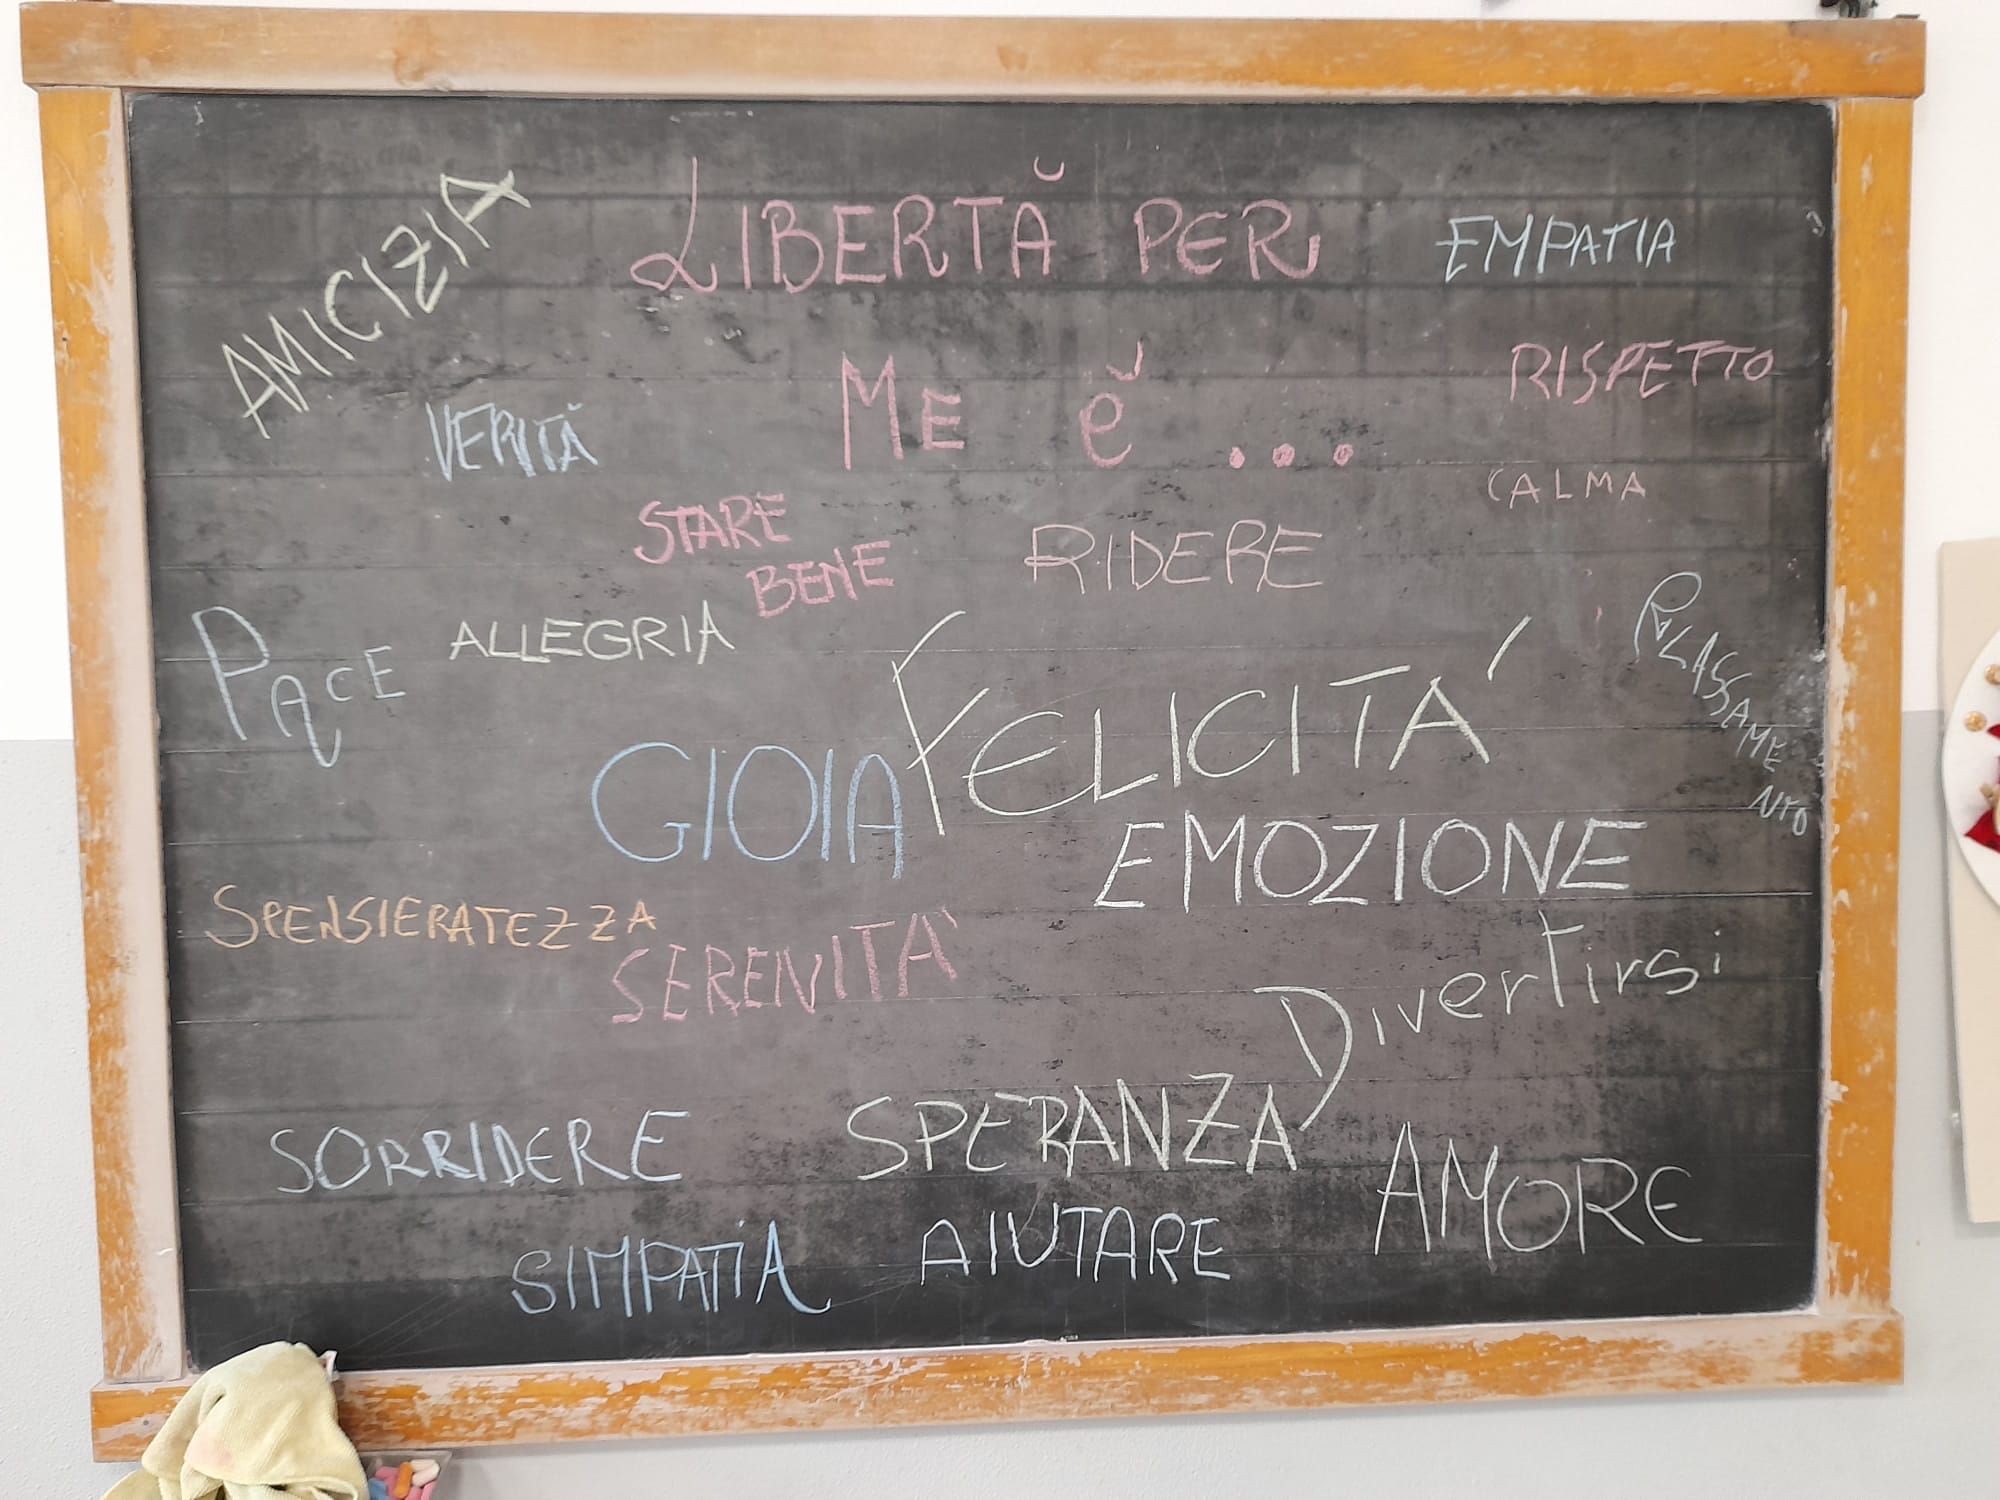 LIBERTĂ PER
ME ĕ ...
AMICIZIA
EMPATIA
VERITÀ
RISPETTO
CALMA
STARE
BENE
RIDERE
PACE
ALLEGRIA
FELICITÁ
RILASSAME
NTO
GIOIA
EMOZIONE
SPENSIERATEZZA
SERENITÀ
Divertirsi
SORRIDERE
SPERANZA
AMORE
SIMPATIA
AIUTARE